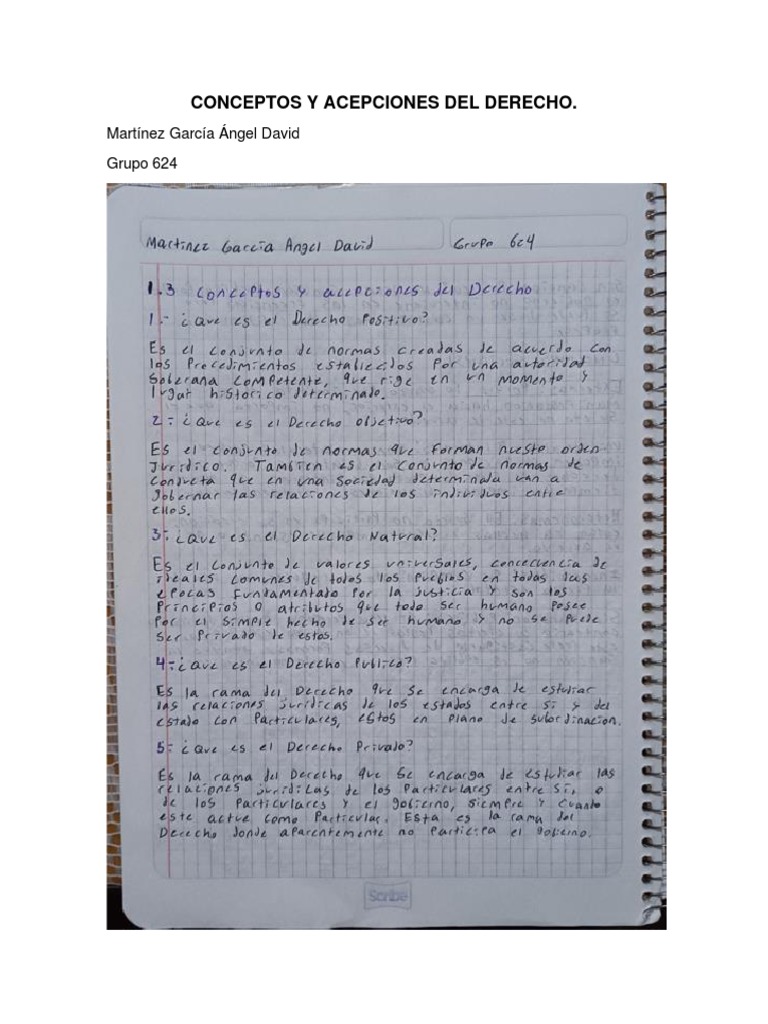 CONCEPTOS Y ACEPCIONES DEL DERECHO.
Martínez García Ángel David
Grupo 624
Martinez Garcia Angel David
Grupo 624
1.3 Conceptos y acepciones del Derecho
1.- ¿Que es el Derecho Positivo?
Es el conjunto de normas creadas de acuerdo con
los Procedimientos establecidos Por una autoridad
Soberana competente, que rige en un momento y
lugar historico determinado.
2.- ¿Que es el Derecho objetivo?
Es el conjunto de normas que forman nuestro orden
Juridico. Tambien es el conjunto de normas de
Conducta que en una Sociedad determinada van a
gobernar las relaciones de los individuos entre
ellos.
3.- ¿Que es el Derecho Natural?
Es el conjunto de valores universales, concecuencia de
ideales comunes de todos los Pueblos en todas las
epocas fundamentado Por la justicia y son los
Principios o atributos que todo ser humano Posee
Por el simple hecho de ser humano y no se Puede
ser Privado de estos.
4.- ¿Que es el Derecho Publico?
Es la rama del Derecho que se encarga de estudiar
las relaciones juridicas de los estados entre si y del
estado con Particulares, estos en Plano de subordinacion.
5.- ¿Que es el Derecho Privado?
Es la rama del Derecho que se encarga de estudiar las
relaciones juridicas de los Particulares entre si, o
de los Particulares y el gobierno, siempre y cuando
este active como Particular. Esta es la rama del
Derecho donde aparentemente no Participa el gobierno.
Scribe